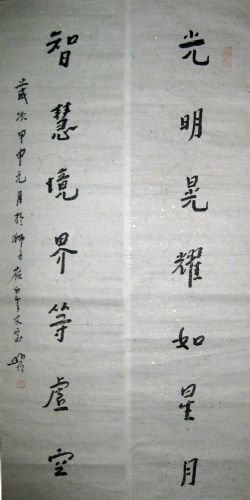 光明晃耀如星月
智慧境界等虛空
歲次甲申元月於獅子